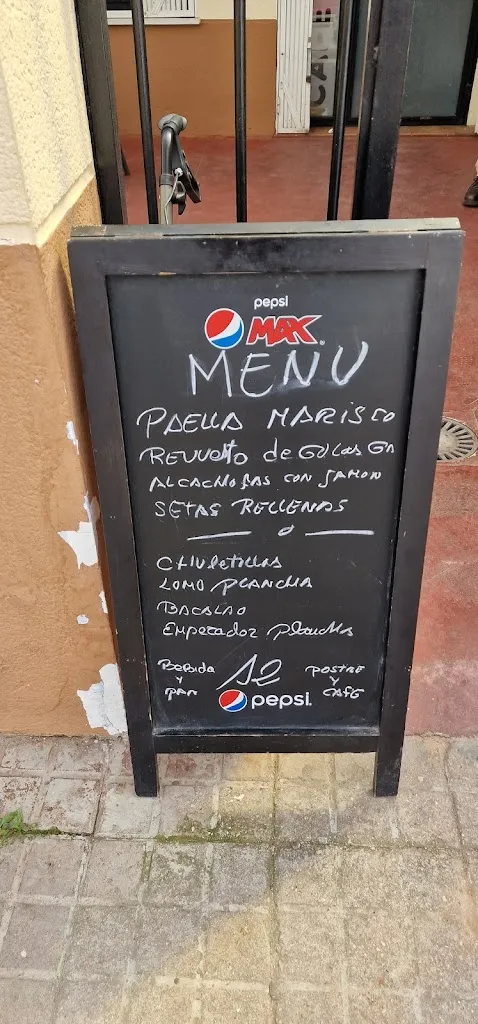 pepsi
MAX
MENU
PAELLA MARISCO
REVUELTO de GULAS
ALCACHOFAS CON JAMON
SETAS RELLENAS
CHULETILLAS
LOMO PLANCHA
BACALAO
EMPERADOR PLANCHA
BEBIDA Y PAN 12 POSTRE Y CAFE
pepsi